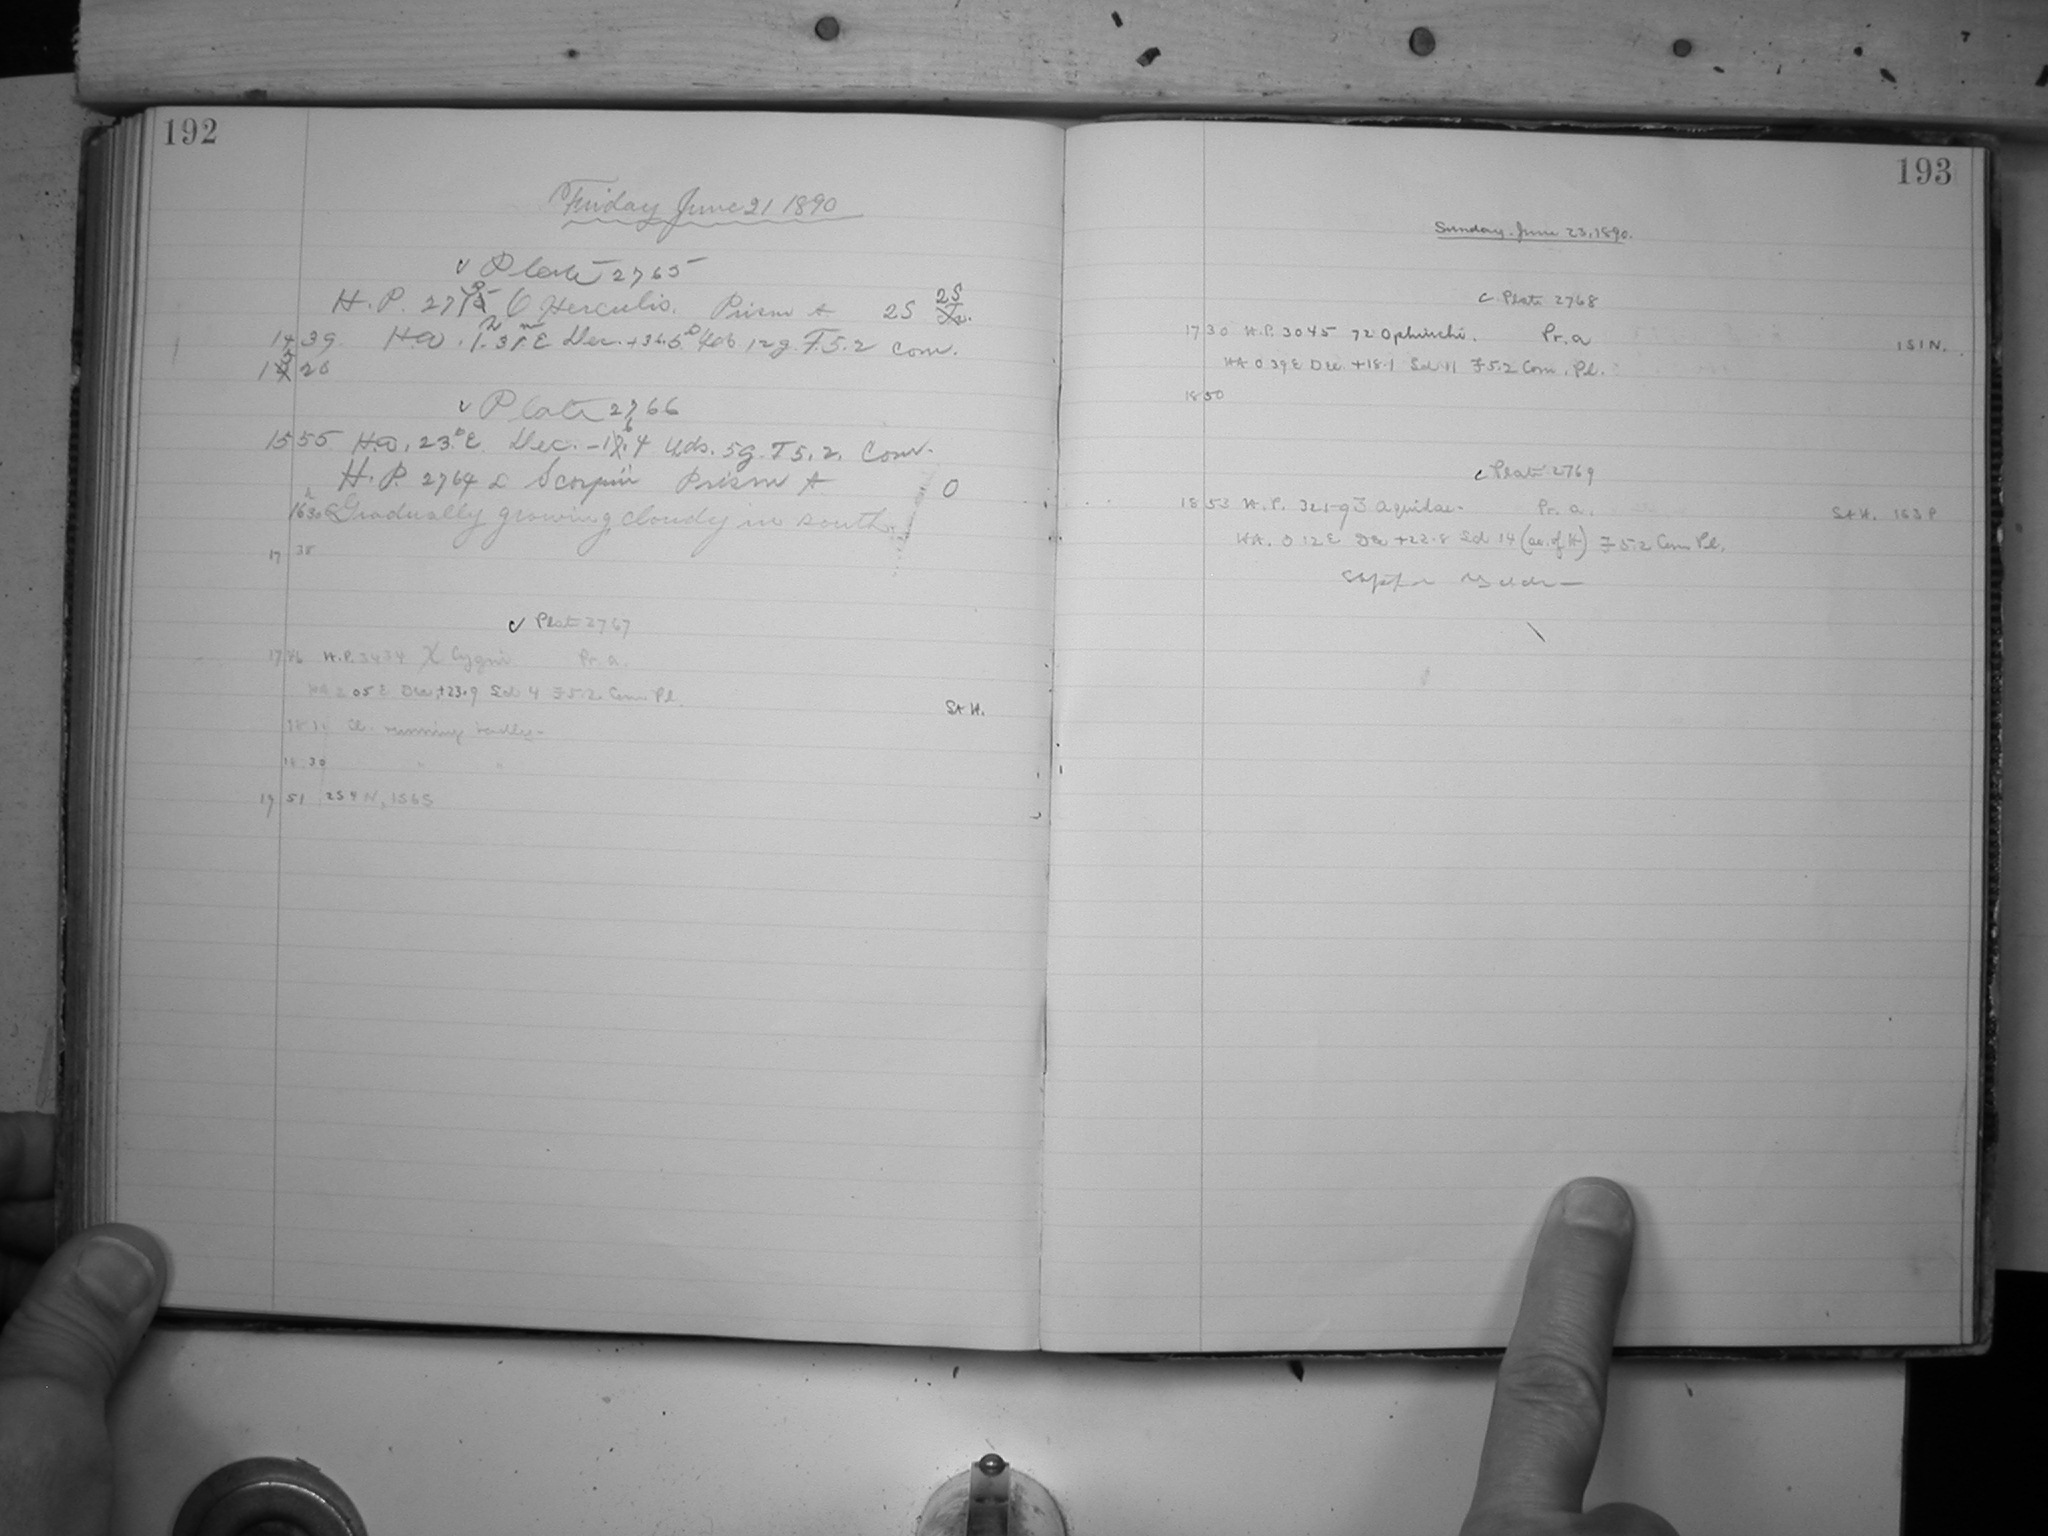 192
Friday June 21 1890
Plate 2765
H.P. 27 Herculis. Prism A 2S 2S
14 39 H.A. 1. 31. E Dec. +36.5 12g. F.5.2 Com.
1 20
Plate 2766
15 55 H.A. 23 E. Dec. -1 .4 5g. F 5.2. Com.
H.P. 2764 Scorpii Prism A 0
16 30 Gradually growing cloudy in south.
17 38
Plate 2767
17 46 H.P. 3434 χ Cygni Pr. a.
HA 2 05 E Dec. +23.9 Scl 4 F 5.2. Com Pl.
S+H.
18 Cl. running badly.
18 30 " "
19 51 254 N, 156S
193
Sunday. June 23, 1890.
Plate 2768
17 30 H.P. 3045 72 Ophiuchi. Pr. a
151N.
HA 0 39 E Dec. +18.1 Scl 11 F 5.2 Com. Pl.
18 50
Plate 2769
18 53 H.P. Aquilae. Pr. a.
S+H.
HA. 0 12 E Dec +22.8 Scl 14 F 5.2 Com Pl.